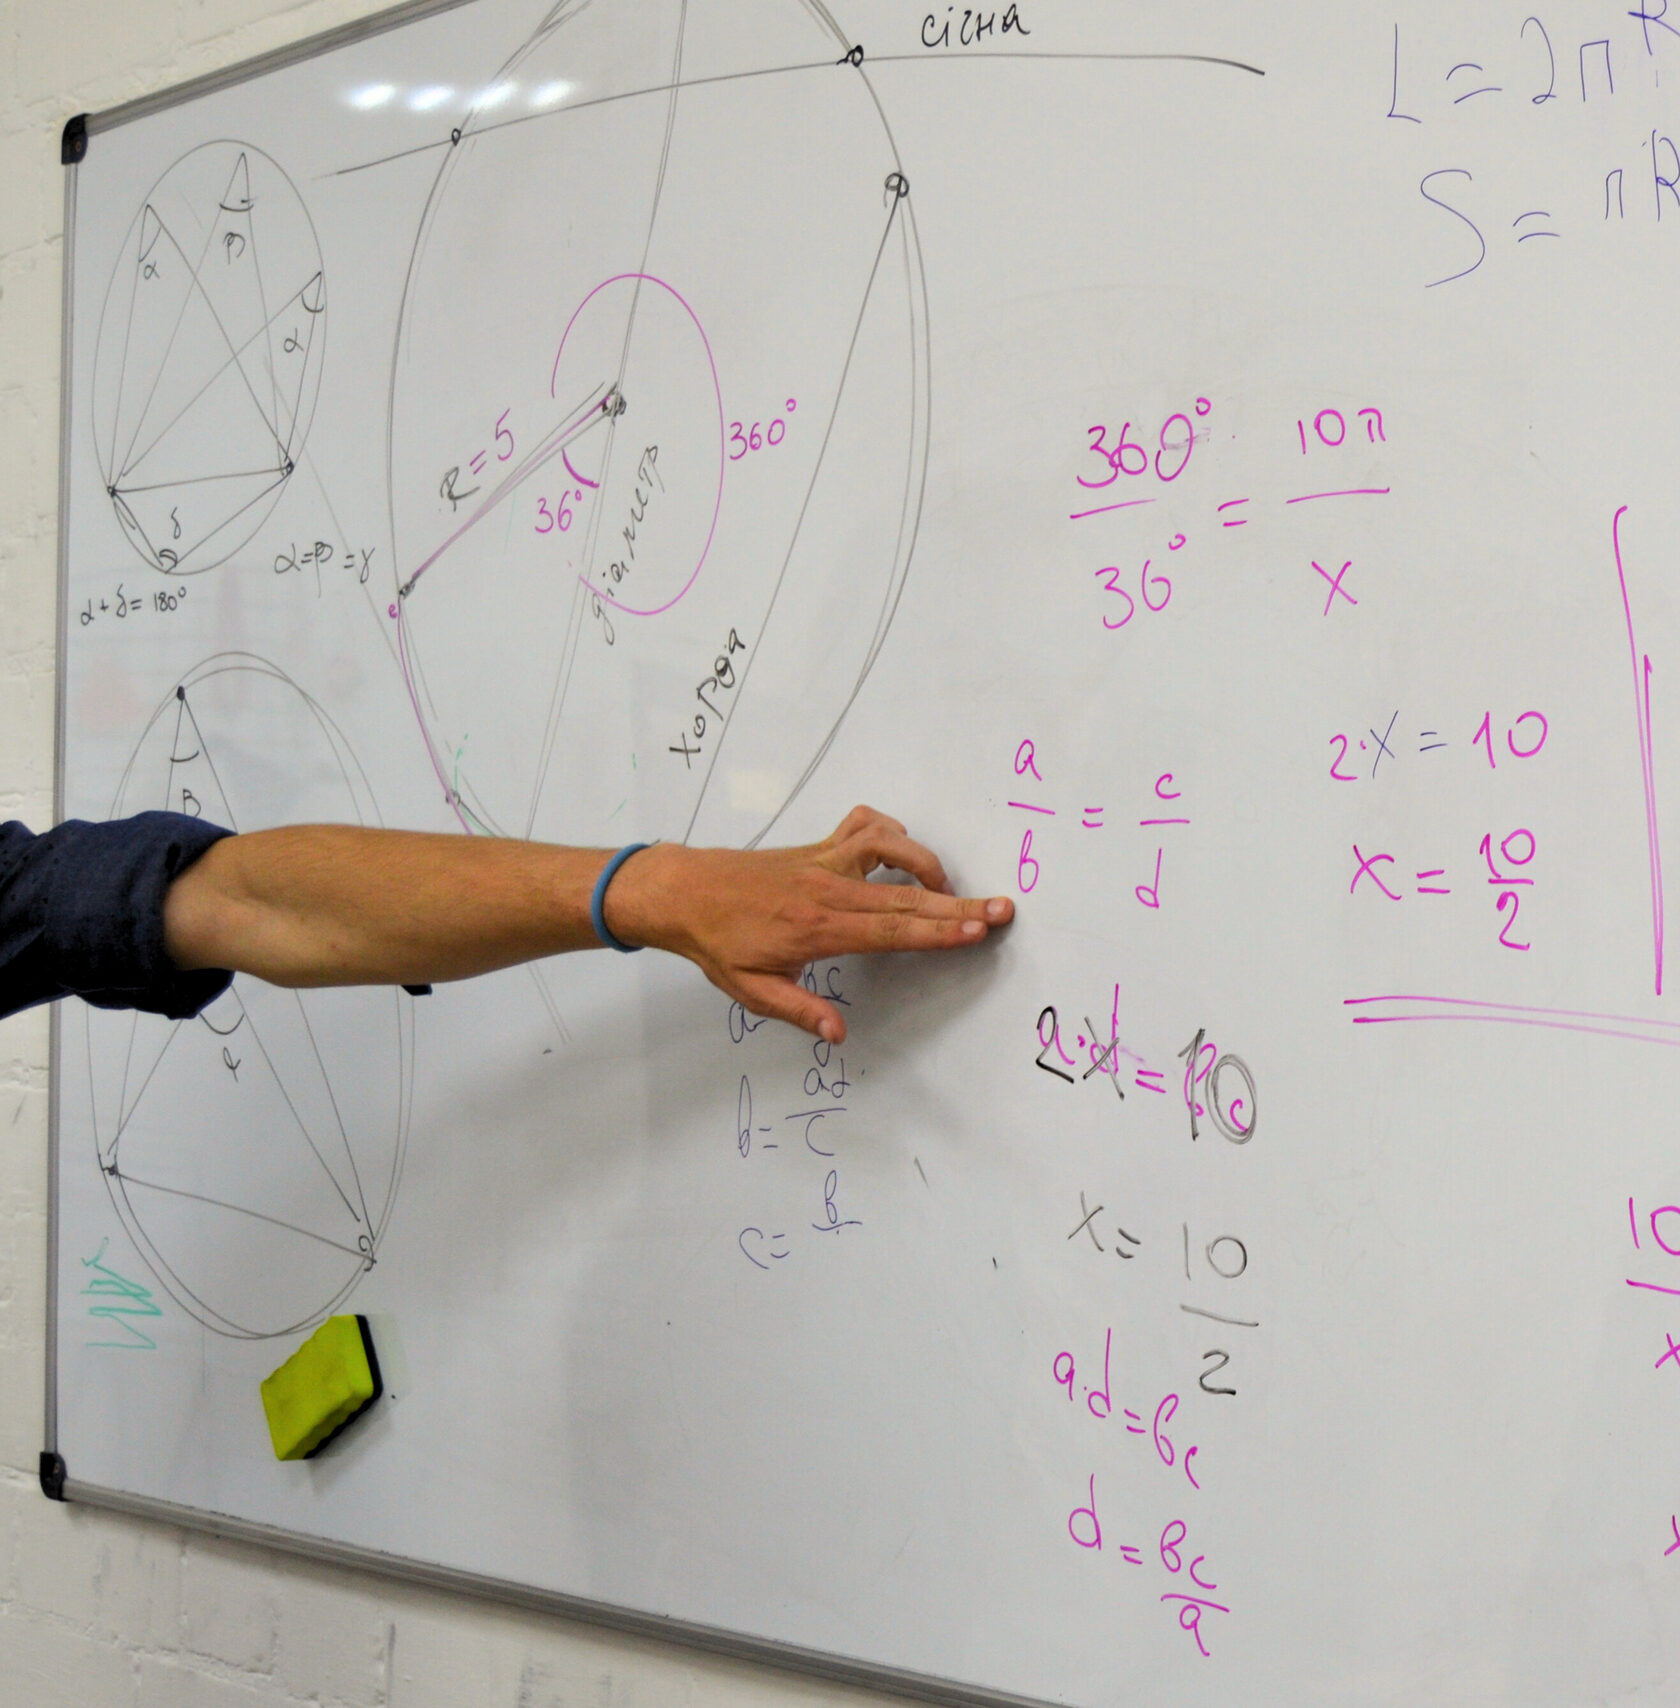 січна
L = 2πR
S = πR
β
α
α
δ
α=β=γ
α+δ=180°
R=5
36°
360°
діаметр
хорда
360° / 36° = 10π / x
a / b = c / d
2·x = 10
x = 10 / 2
β
φ
b = ad / c
c = b
2·x = 10
x = 10 / 2
a·d = bc
d = bc / a
10
x